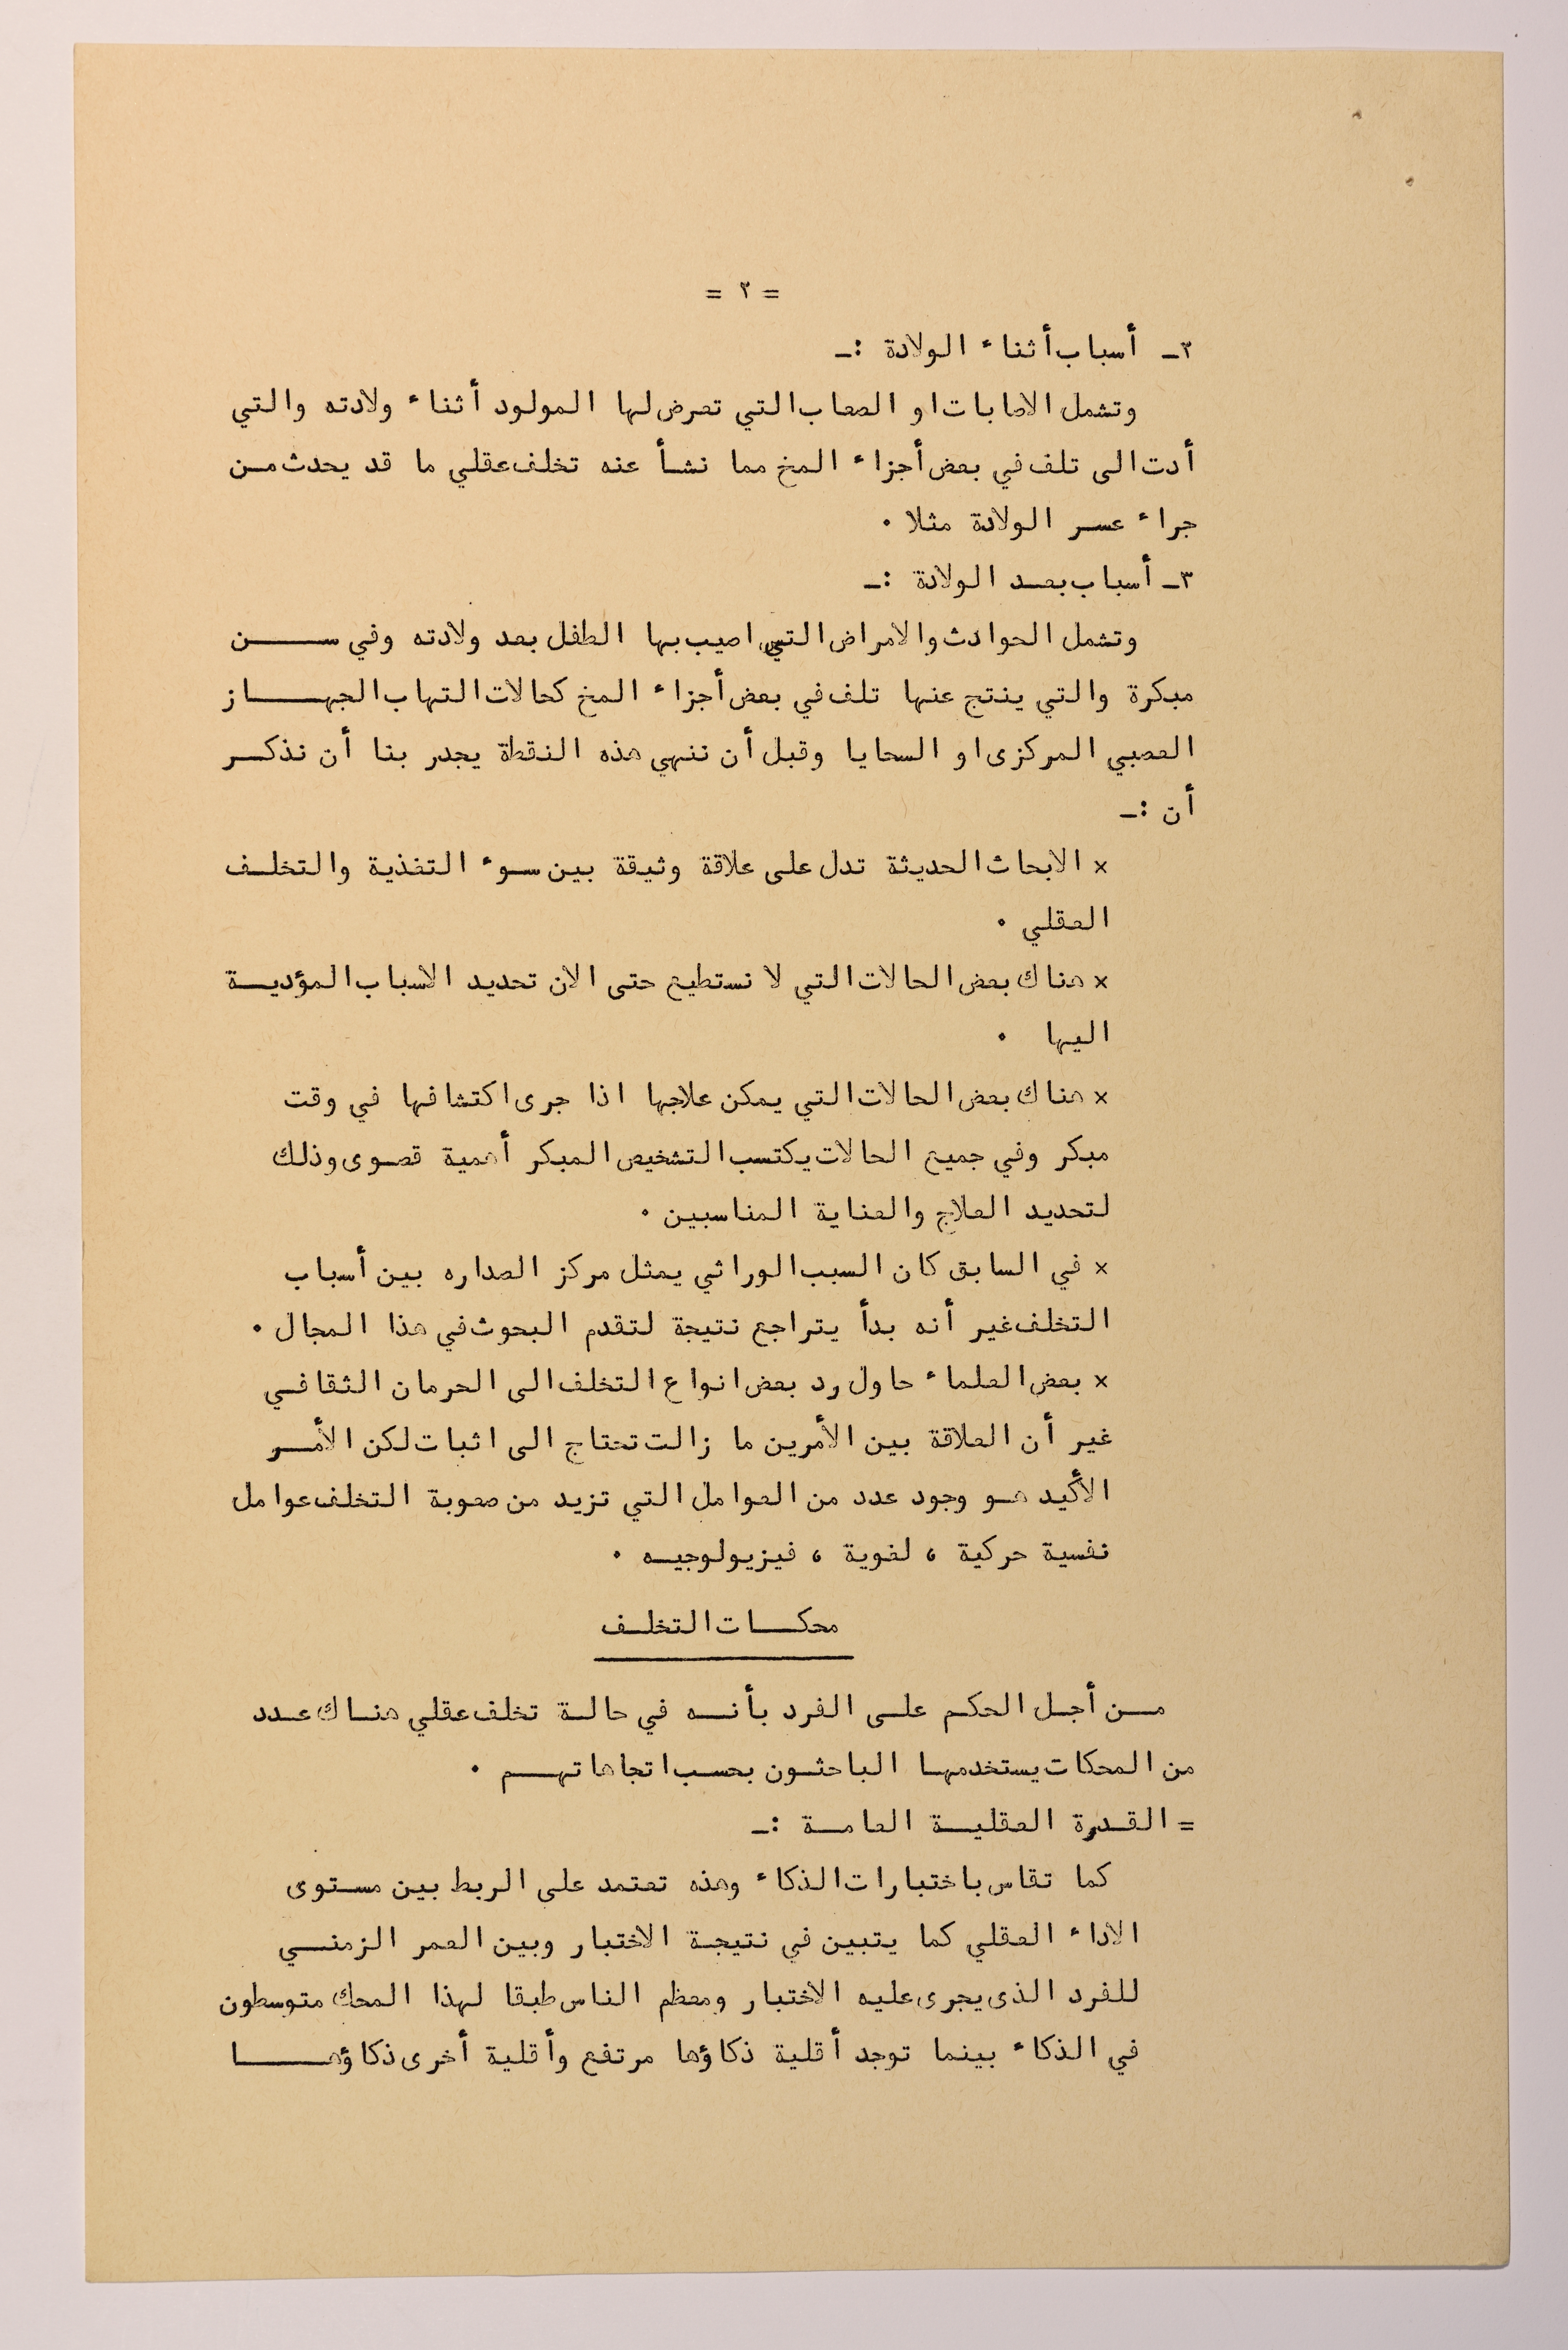 = ٢ =
٢ـ أسباب أثناء الولادة :ـ
وتشمل الاصابات او الصعاب التي تعرض لها المولود أثناء ولادته والتي
أدت الى تلف في بعض أجزاء المخ مما نشأ عنه تخلف عقلي ما قد يحدث مـن
جراء عسـر الولادة مثلا ٠
٣ـ أسباب بعـد الولادة :ـ
وتشمل الحوادث والامراض التي اصيب بها الطفل بعد ولادته وفي ســـن
مبكرة والتي ينتج عنها تلف في بعض أجزاء المخ كحالات التهاب الجهــــاز
العصبي المركزى او السحايا وقبل أن ننهي هذه النقطة يجدر بنا أن نذكـر
أن :ـ
× الابحاث الحديثة تدل على علاقة وثيقة بين سـوء التغذية والتخلـف
العقلي ٠
× هناك بعض الحالات التي لا نستطيع حتى الان تحديد الاسباب المؤديـة
اليها ٠
× هناك بعض الحالات التي يمكن علاجها اذا جرى اكتشافها في وقت
مبكر وفي جميع الحالات يكتسب التشخيص المبكر أهمية قصوى وذلك
لتحديد العلاج والعناية المناسبين ٠
× في السابق كان السبب الوراثي يمثل مركز الصداره بين أسباب
التخلف غير أنه بدأ يتراجع نتيجة لتقدم البحوث في هذا المجال ٠
× بعض العلماء حاول رد بعض انواع التخلف الى الحرمان الثقافـي
غير أن العلاقة بين الأمرين ما زالت تحتاج الى اثبات لكن الأمـر
الأكيد هـو وجود عدد من العوامل التي تزيد من صعوبة التخلف عوامل
نفسية حركية ، لغوية ، فيزيولوجيـه ٠
محكـــات التخلـف
مــن أجـل الحكـم علـى الفرد بأنــه في حالـة تخلف عقلي هنـاك عـدد
من المحكات يستخدمهـا الباحثـون بحسـب اتجاهاتهــم ٠
= القـدرة العقليـة العامـة :ـ
كما تقاس باختبارات الذكاء وهذه تعتمد على الربط بين مسـتوى
الاداء العقلي كما يتبين في نتيجة الاختبار وبين العمر الزمنــي
للفرد الذى يجرى عليه الاختبار ومعظم الناس طبقا لهذا المحك متوسطون
في الذكاء بينما توجد أقلية ذكاؤها مرتفع وأقلية أخرى ذكاؤهـــــا